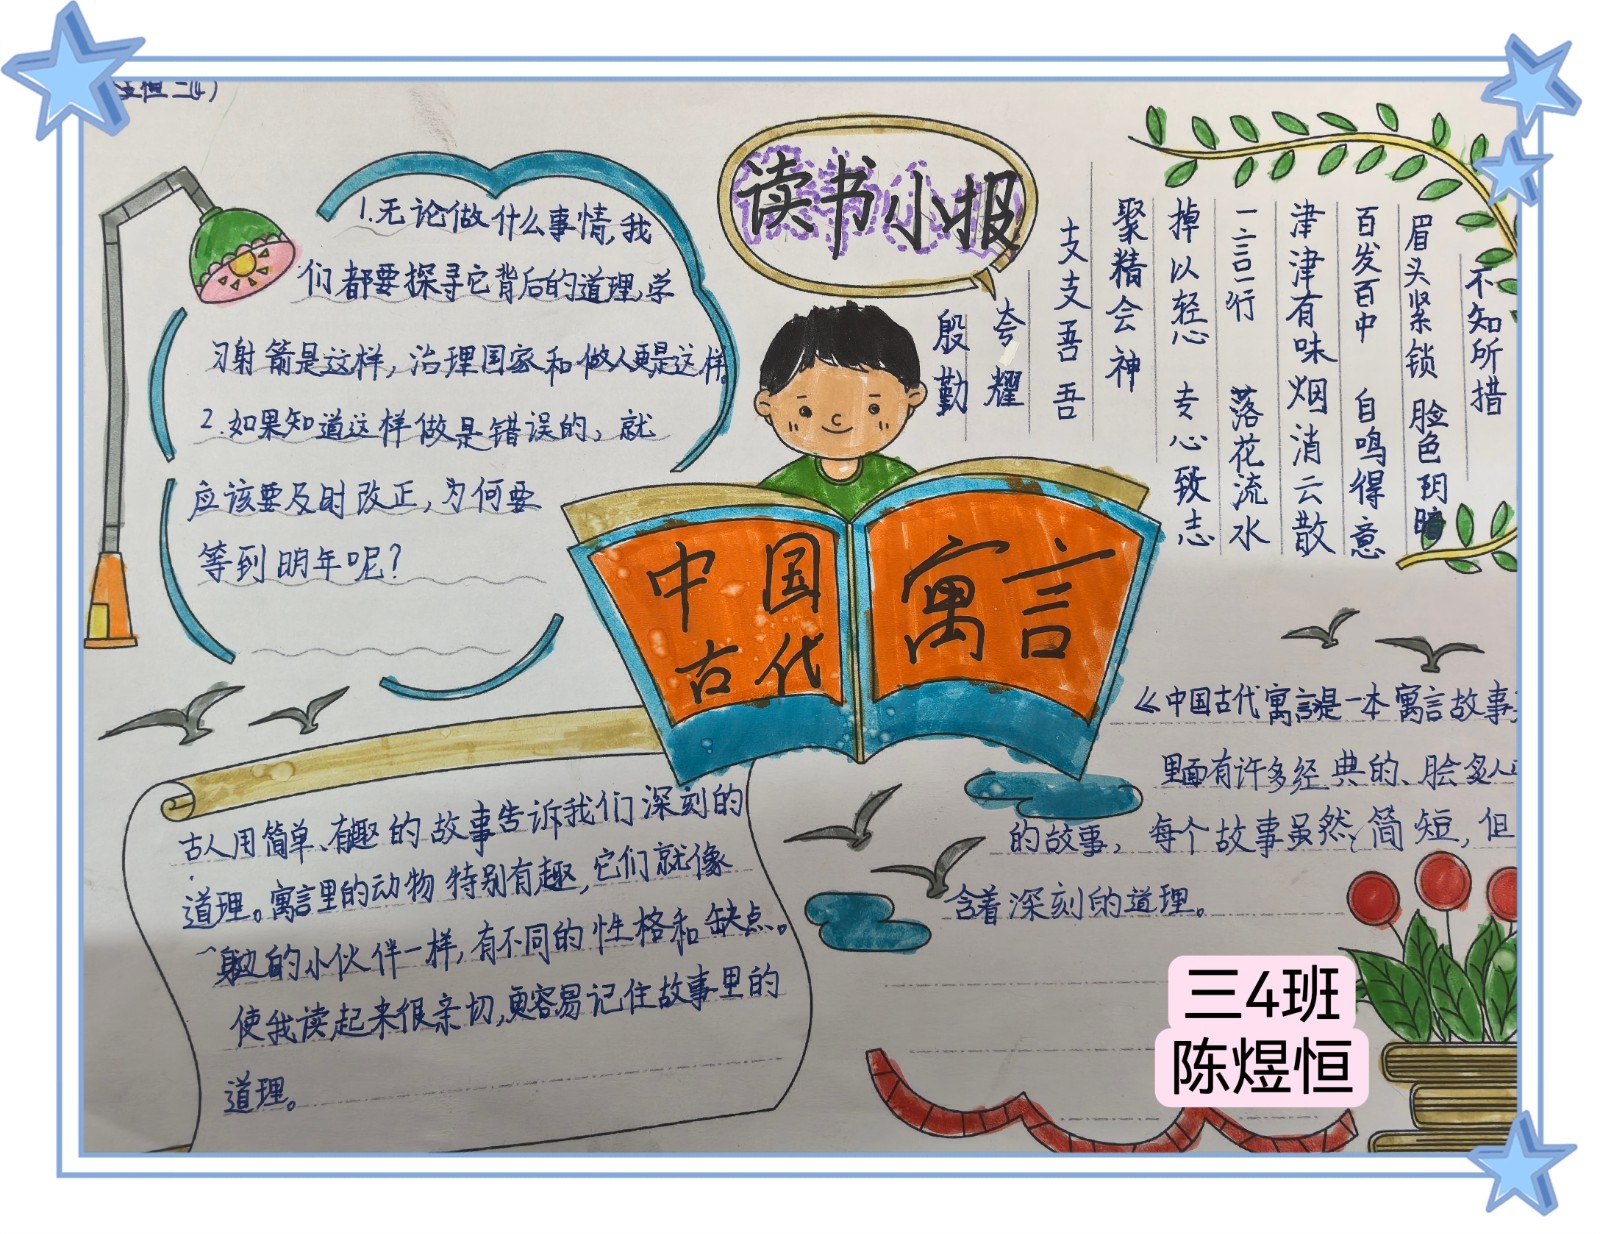 读书小报
1.无论做什么事情,我
们都要探寻它背后的道理,学
习射箭是这样,治理国家和做人更是这样
2.如果知道这样做是错误的,就
应该要及时改正,为何要
等到明年呢?
中国
古代
寓言
不知所措
眉头紧锁 脸色阴暗
百发百中 自鸣得意
津津有味 烟消云散
一言一行 落花流水
掉以轻心 专心致志
聚精会神
支支吾吾
夸耀
殷勤
古人用简单、有趣的故事告诉我们深刻的
道理。寓言里的动物特别有趣,它们就像
身边的小伙伴一样,有不同的性格和缺点。
使我读起来很亲切,更容易记住故事里的
道理。
《中国古代寓言是一本寓言故事
里面有许多经典的、脍炙人
的故事,每个故事虽然简短,但
含着深刻的道理。
三4班
陈煜恒